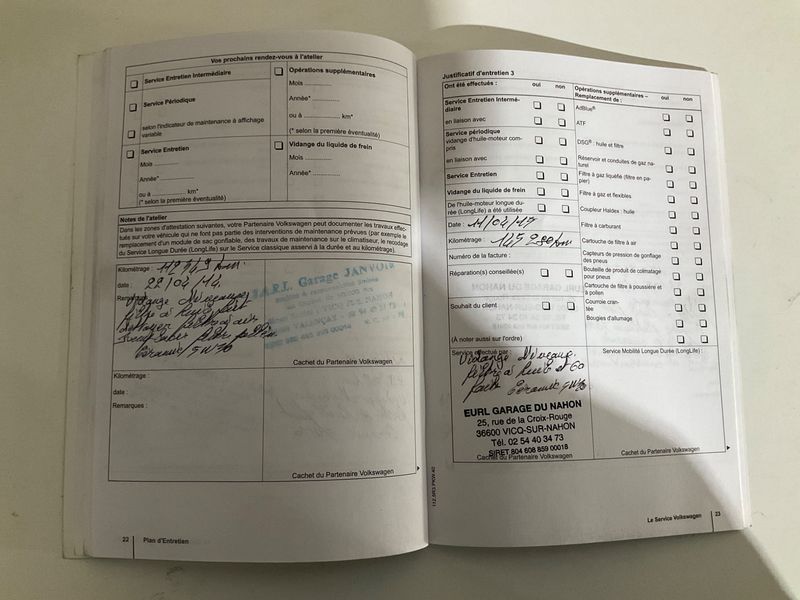 Vos prochains rendez-vous à l'atelier
Service Entretien Intermédiaire
Service Périodique
selon l'indicateur de maintenance à affichage
variable.
Service Entretien
Mois ............
Année* ............
ou à ............ km*
(* selon la première éventualité)
Opérations supplémentaires
Mois ............
Année* ............
ou à ............ km*
(* selon la première éventualité)
Vidange du liquide de frein
Mois ............
Année* ............
Notes de l'atelier
Dans les zones d'attestation suivantes, votre Partenaire Volkswagen peut documenter les travaux effec-
tués sur votre véhicule qui ne font pas partie des interventions de maintenance prévues (par exemple le
remplacement d'un module de sac gonflable, des travaux de maintenance sur le climatiseur, le recodage
du Service Longue Durée (LongLife) sur le Service classique asservi à la durée et au kilométrage).
Kilométrage :
date : 22/04/14.
Remarques
S.A.R.L. Garage JANVOIR
Cachet du Partenaire Volkswagen
Kilométrage :
date :
Remarques :
Cachet du Partenaire Volkswagen
22
Plan d'Entretien
Justificatif d'entretien 3
Ont été effectués : oui non
Service Entretien Intermé-
diaire
en liaison avec
Service périodique
vidange d'huile-moteur com-
pris
en liaison avec
Service Entretien
Vidange du liquide de frein
De l'huile-moteur longue du-
rée (LongLife) a été utilisée
Date : 11/04/17
Kilométrage : 145 280 km
Numéro de la facture :
Réparation(s) conseillée(s)
Souhait du client
(À noter aussi sur l'ordre)
Service effectué par :
Vidange
EURL GARAGE DU NAHON
25, rue de la Croix-Rouge
36600 VICQ-SUR-NAHON
Tél. 02 54 40 34 73
SIRET 804 608 859 00018
Cachet du Partenaire Volkswagen
Opérations supplémentaires –
Remplacement de : oui non
AdBlue®
ATF
DSG® : huile et filtre
Réservoir et conduites de gaz na-
turel
Filtre à gaz liquéfié (filtre en pa-
pier)
Filtre à gaz et flexibles
Coupleur Haldex : huile
Filtre à carburant
Cartouche de filtre à air
Capteurs de pression de gonflage
des pneus
Bouteille de produit de colmatage
pour pneus
Cartouche de filtre à poussière et
à pollen
Courroie cran-
tée
Bougies d'allumage
Service Mobilité Longue Durée (LongLife) :
Le Service Volkswagen
23